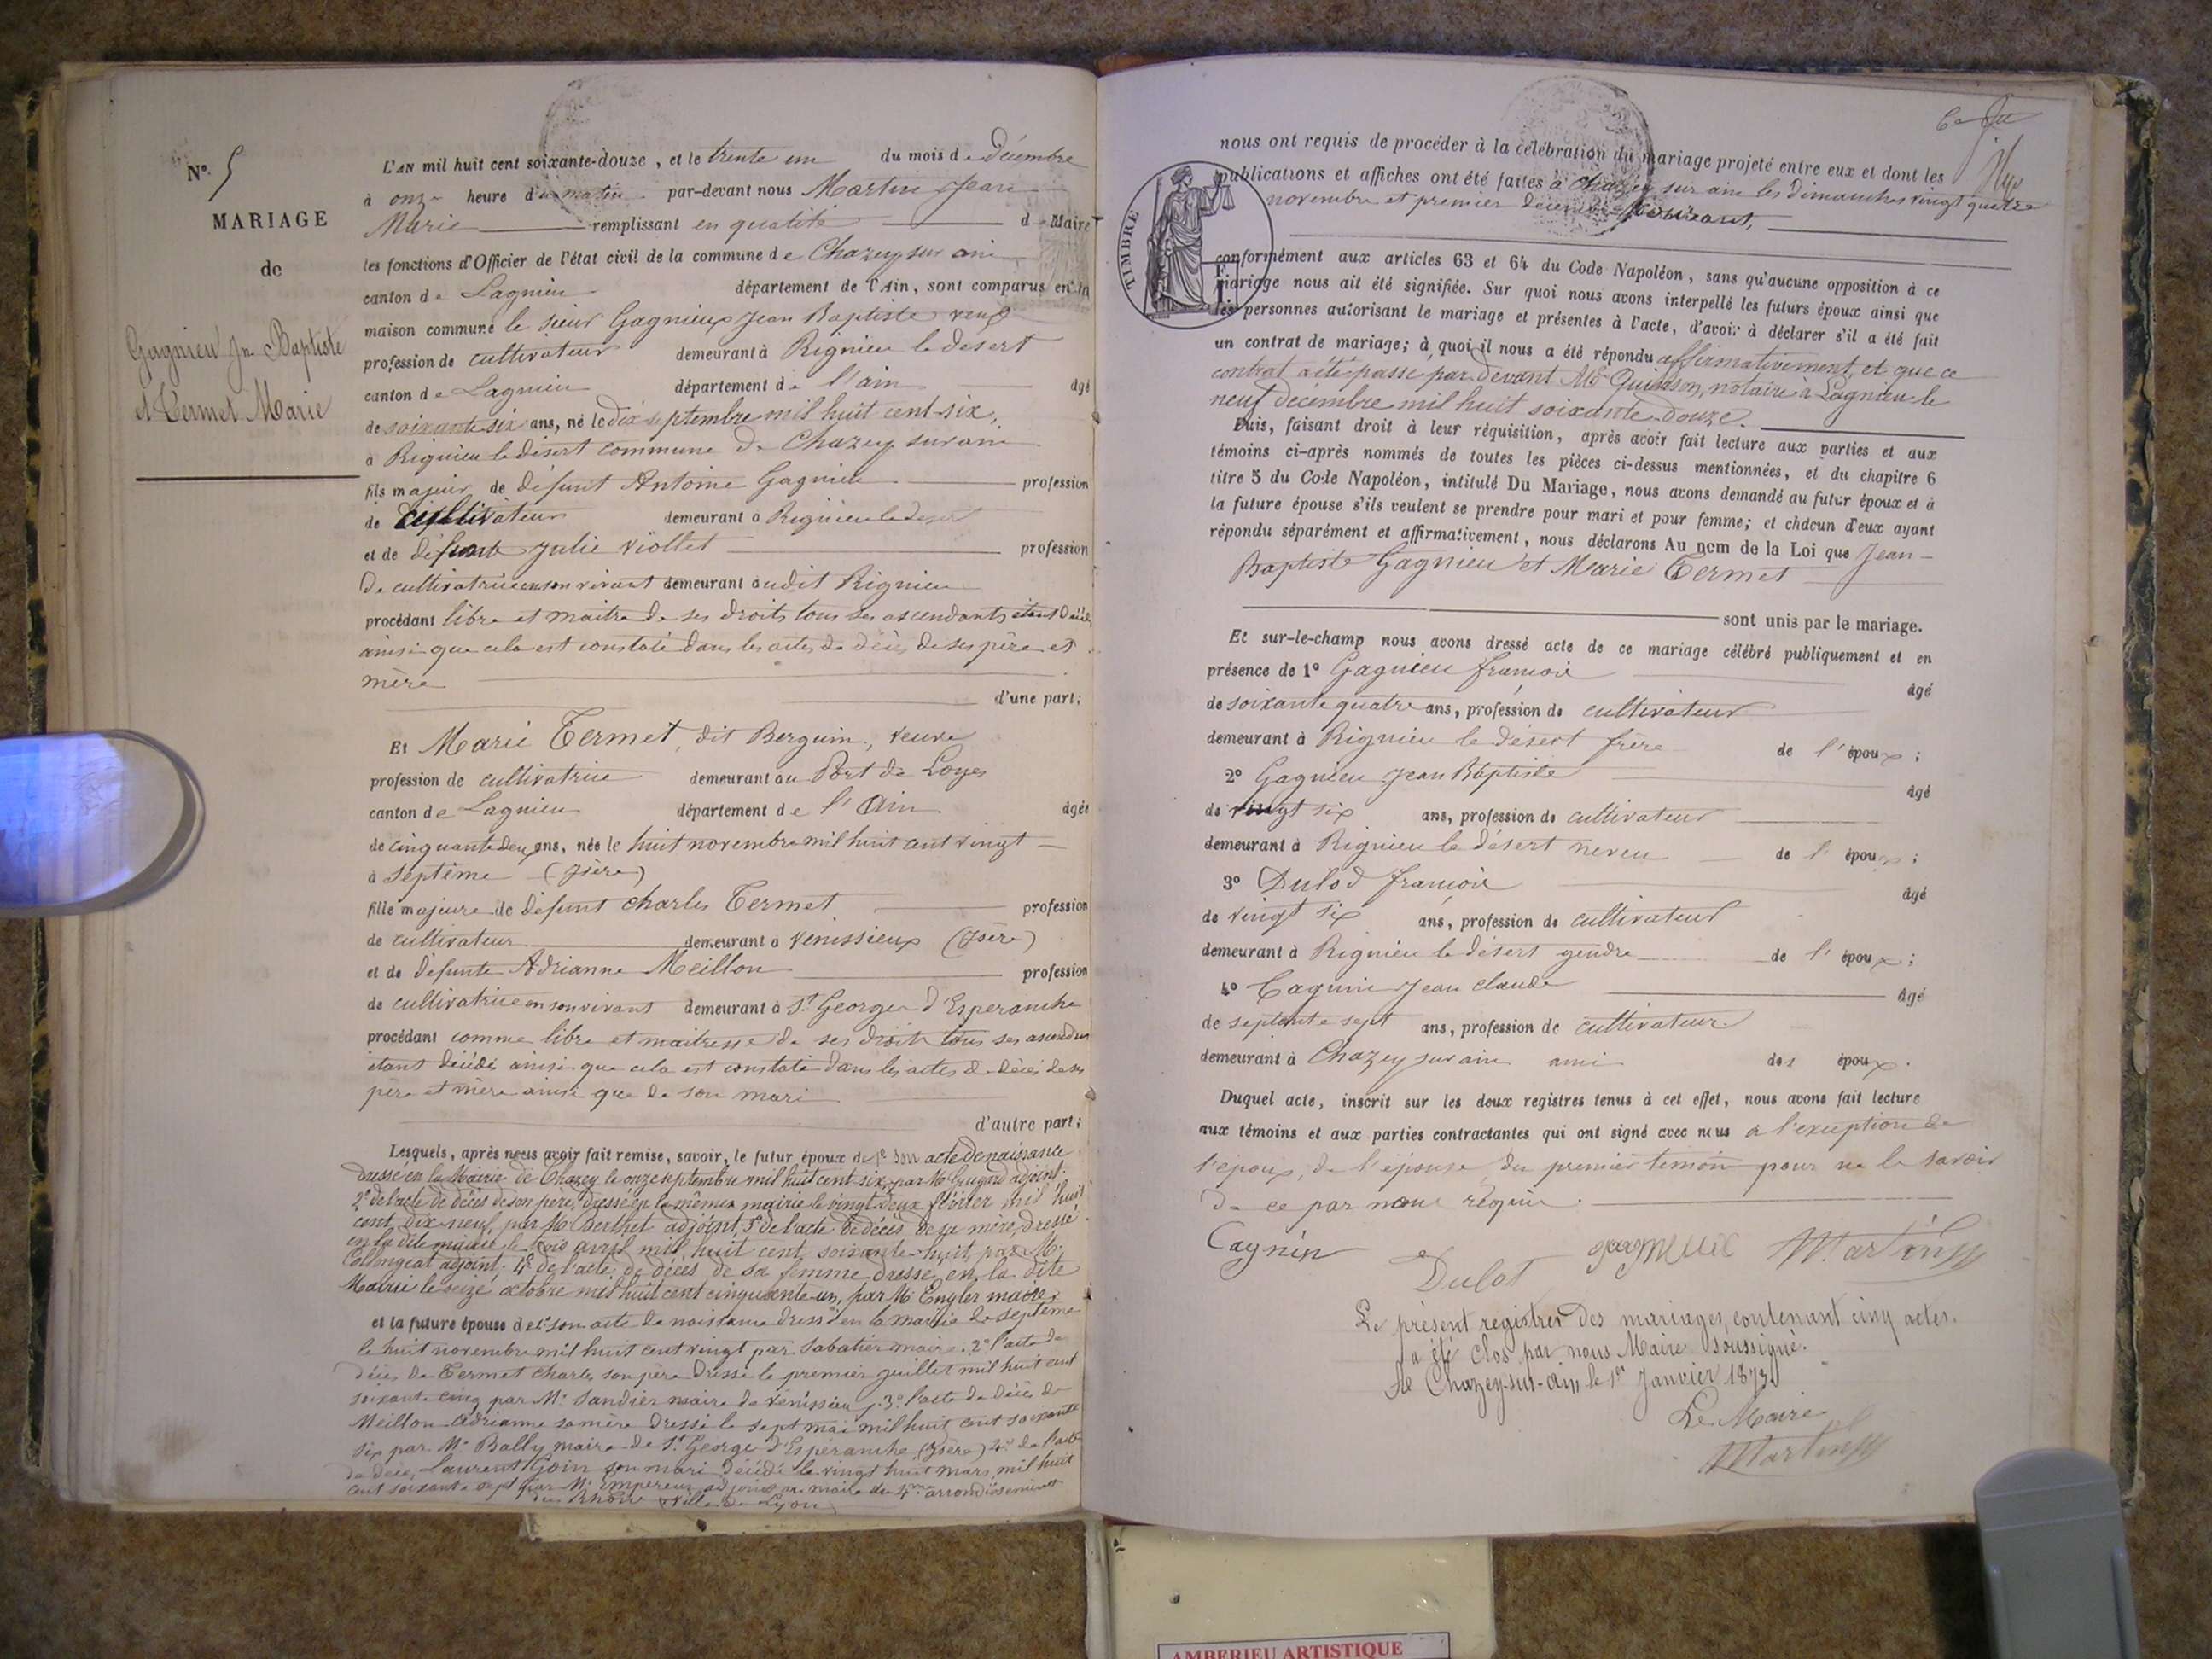 N° 5
MARIAGE
de
Gagnieu Jn Baptiste
et Termet Marie
L'AN mil huit cent soixante-douze, et le trente un du mois de Décembre
à onze heure du matin par-devant nous Martin Jean
Marie remplissant en qualité de Maire
les fonctions d'Officier de l'état civil de la commune de Chazey sur ain
canton de Lagnieu département de l'Ain, sont comparus en la
maison commune le sieur Gagnieux Jean Baptiste veuf
profession de cultivateur demeurant à Rignieu le desert
canton de Lagnieu département de l'ain âgé
de soixante six ans, né le dix septembre mil huit cent-six,
à Rignieu le désert commune de Chazey sur ain
fils majeur de défunt Antoine Gagnieu profession
de cultivateur demeurant à Rignieu le desert
et de défunte Julie Viollet profession
De cultivatrice en son vivant demeurant audit Rignieu
procédant libre et maitre de ses droits tous ses ascendants étant décédés
ainsi que cela est constaté dans les actes de décès de ses père et
mère
d'une part;
Et Marie Termet, dit Berguin, veuve
profession de cultivatrice demeurant au Port de Loyes
canton de Lagnieu département de l'Ain âgée
de cinquante deux ans, née le huit novembre mil huit cent vingt
à Septême (Isère)
fille majeure de défunt Charles Termet profession
de cultivateur demeurant à Venissieux (Isère)
et de défunte Adrianne Meillon profession
de cultivatrice en son vivant demeurant à St George d'Esperanche
procédant comme libre et maitresse de ses droits tous ses ascendans
étant décédé ainsi que cela est constaté dans les actes de décès de ses
père et mère ainsi que de son mari
d'autre part;
Lesquels, après nous avoir fait remise, savoir, le futur époux de 1° son acte de naissance
Dressé en la Mairie de Chazey le onze septembre mil huit cent six, par Mr adjoint.
2° de l'acte de décès de son père, dressé en la même mairie le vingt deux février mil huit
cent dix-neuf, par Mr Berthet adjoint, 3° de l'acte de décès de sa mère, dressé
en la dite mairie le trois avril mil huit cent soixante-huit par M.
Collongeat adjoint. 4° de l'acte de décès de sa femme dressé en la dite
Mairie le seize octobre mil huit cent cinquante-un, par Mr Engler maire.
et la future épouse de 1° son acte de naissance dressé en la mairie de Septême
le huit novembre mil huit cent vingt par Sabatier maire. 2° l'acte de
décès de Termet Charles son père dressé le premier juillet mil huit cent
soixante cinq par Mr Sandier maire de Vénissieu. 3° l'acte de décès de
Meillon Adrianne sa mère dressé le sept mai mil huit cent soixante
six par Mr Bally maire de St George d'Esperanche (Isère) 4° de l'acte
de décès, Laurent Goin son mari Décédé le vingt huit mars mil huit
cent soixante sept par Mr Empereur adjoint au maire du 4me arrondissement
du Rhône Ville de Lyon
nous ont requis de procéder à la célébration du mariage projeté entre eux et dont les
publications et affiches ont été faites à Chazey sur ain les Dimanches vingt quatre
novembre et premier décembre courant,
TIMBRE
conformément aux articles 63 et 64 du Code Napoléon, sans qu'aucune opposition à ce
mariage nous ait été signifiée. Sur quoi nous avons interpellé les futurs époux ainsi que
les personnes autorisant le mariage et présentes à l'acte, d'avoir à déclarer s'il a été fait
un contrat de mariage; à quoi il nous a été répondu affirmativement, et que ce
contrat a été passé par devant Me Quinson, notaire à Lagnieu le
neuf décembre mil huit soixante douze.
Puis, faisant droit à leur réquisition, après avoir fait lecture aux parties et aux
témoins ci-après nommés de toutes les pièces ci-dessus mentionnées, et du chapitre 6
titre 5 du Code Napoléon, intitulé Du Mariage, nous avons demandé au futur époux et à
la future épouse s'ils veulent se prendre pour mari et pour femme; et chacun d'eux ayant
répondu séparément et affirmativement, nous déclarons Au nom de la Loi que Jean-
Baptiste Gagnieu et Marie Termet
sont unis par le mariage.
Et sur-le-champ nous avons dressé acte de ce mariage célébré publiquement et en
présence de 1° Gagnieu françois âgé
de soixante quatre ans, profession de cultivateur
demeurant à Rignieu le désert frère de l'époux;
2° Gagnieu Jean Baptiste âgé
de vingt six ans, profession de cultivateur
demeurant à Rignieu le désert neveu de l'époux;
3° Dulod françois âgé
de vingt six ans, profession de cultivateur
demeurant à Rignieu le désert gendre de l'époux;
4° Cagnin Jean Claude âgé
de septante sept ans, profession de cultivateur
demeurant à Chazey sur ain ami des époux.
Duquel acte, inscrit sur les deux registres tenus à cet effet, nous avons fait lecture
aux témoins et aux parties contractantes qui ont signé avec nous à l'exception de
l'époux, de l'épouse, du premier temoin pour ne le savoir
de ce par nous requis.
Cagnin Dulot gagnieux Martin
Le présent registre des mariages, contenant cinq actes.
a été clos par nous Maire soussigné.
A Chazey-sur-ain le 1er Janvier 1873
Le Maire
Martin
AMBERIEU ARTISTIQUE